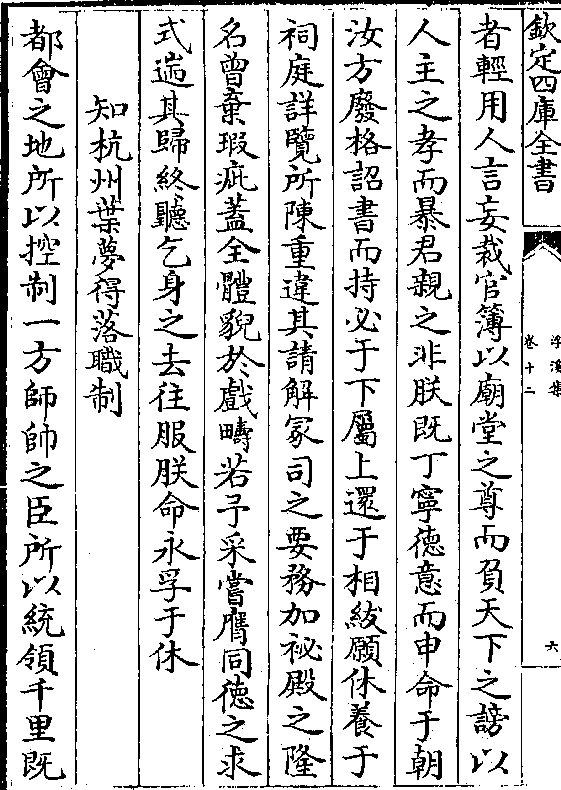 欽定四庫全書
浮溪集
卷十二
六
者輕用人言妄裁官簿以廟堂之尊而負天下之謗以
人主之孝而暴君親之非朕既丁寧德意而申命于朝
汝方廢格詔書而持必于下屬上還于相紱願休養于
祠庭詳覽所陳重違其請解冢司之要務加祕殿之隆
名曾棄瑕疵蓋全體貌於戲疇若予采嘗膺同德之求
式遄其歸終聽乞身之去往服朕命永孚于休
知杭州葉夢得落職制
都會之地所以控制一方師帥之臣所以統領千里既